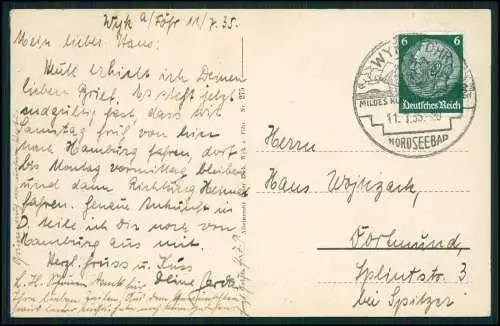 Wyk a/Föhr 11/7.35.
Mein lieber Hans:
Heute erhielt ich Deinen
lieben Brief. Es steht jetzt
endgültig fest, dass wir
Samstag früh von hier
nach Hamburg fahren, dort
bis Montag vormittag bleiben
und dann Richtung Heimat
fahren. Genaue Ankunft in
D. teile ich dir noch von
Hamburg aus mit.
Herzl. Gruss u. Kuss
Deine Gerda
L. H. Schönen Dank für
Ihre lieben Zeilen.
WYK FÖHR
MILDES
11.7.35
NORDSEEBAD
6 6
Deutsches Reich
Wyk a. Föhr Nr. 275
Herrn
Hans Wojnzack,
Dortmund
Splintstr. 3
bei Spitzer